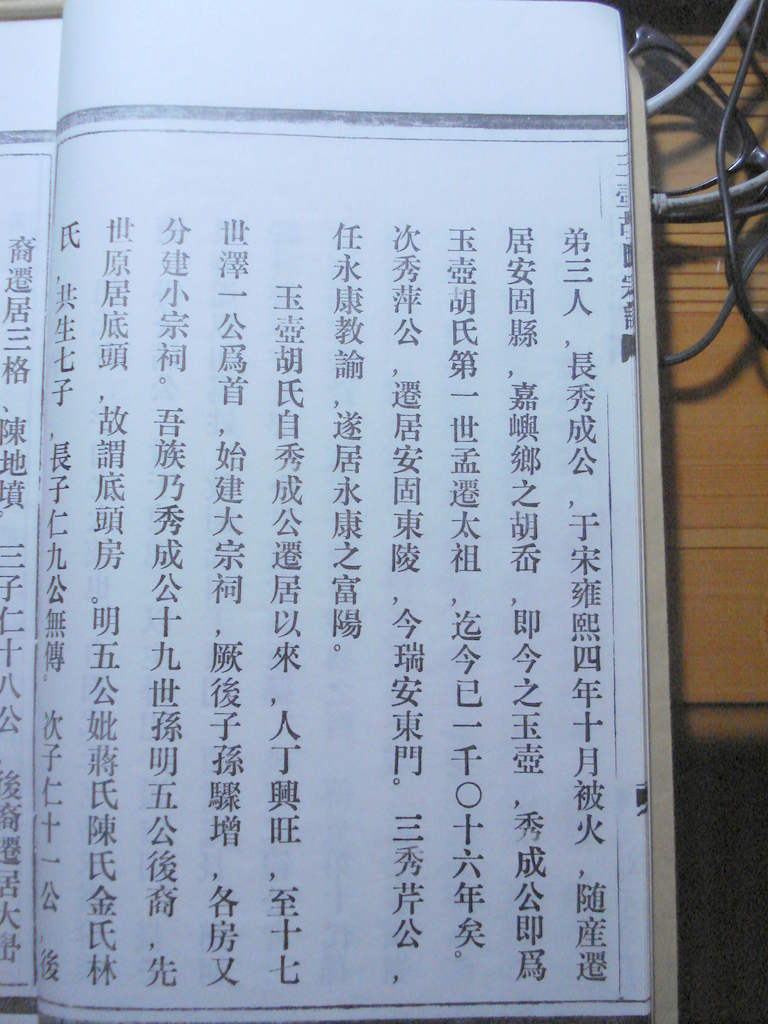 弟三人，長秀成公，于宋雍熙四年十月被火，随産遷
居安固縣，嘉嶼鄉之胡岙，即今之玉壺，秀成公即爲
玉壺胡氏第一世孟遷太祖，迄今已一千〇十六年矣。
次秀萍公，遷居安固東陵，今瑞安東門。三秀芹公，
任永康教諭，遂居永康之富陽。
玉壺胡氏自秀成公遷居以來，人丁興旺，至十七
世澤一公爲首，始建大宗祠，厥後子孫驟增，各房又
分建小宗祠。吾族乃秀成公十九世孫明五公後裔，先
世原居底頭，故謂底頭房。明五公妣蔣氏陳氏金氏林
氏，共生七子，長子仁九公無傳。次子仁十一公，後
裔遷居三格、陳地墳。三子仁十八公，後裔遷居大峃